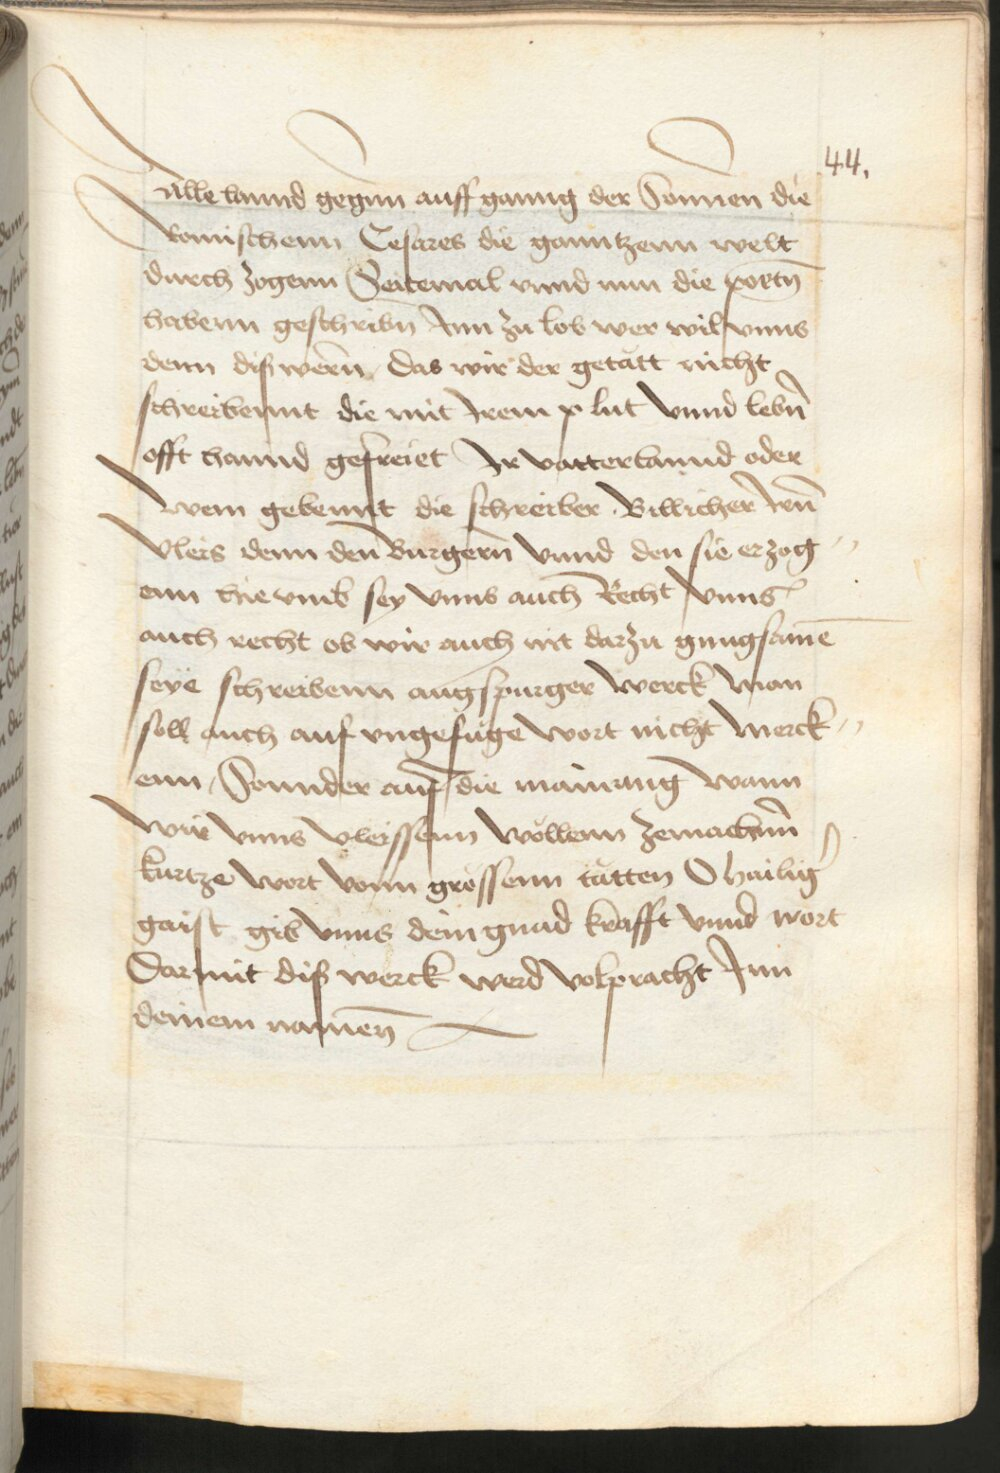 44.
Alle lannd gegnn auff ganng der Sonnen die
Romischenn Cesares die ganntzenn welt
durch zogenn Seitemal vnnd nun die poetn̄
habenn geschribn̄ Inn zu lob wer wil vnns
denn diß wern̄ das wir der getatt nicht
schreibennt die mit Irem plut Vnnd lebn̄
offt hannd gefreiet Ir vatterlannd oder
Wem gebennt die schreiber Billicher Irn̄
Vleis denn den Burgern̄ Vnnd den sie erzog〃
enn hie vmb sey Vnns auch Recht Vnns
auch recht ob wir auch nit darzu gnugsame
seye schreibenn augspurger Werck Man
soll auch auf vngefuge Wort nicht Merck〃
enn Sonnder auf die mainung Wann
Wir Vnns Vleissenn Wöllenn zemachnn̄
kurtze Wort Vonn grössenn tätten O hailig
gaist gib Vnns dein gnad krafft Vnnd wort
Darmit diß werck werd volpracht Inn
deinem namen̄